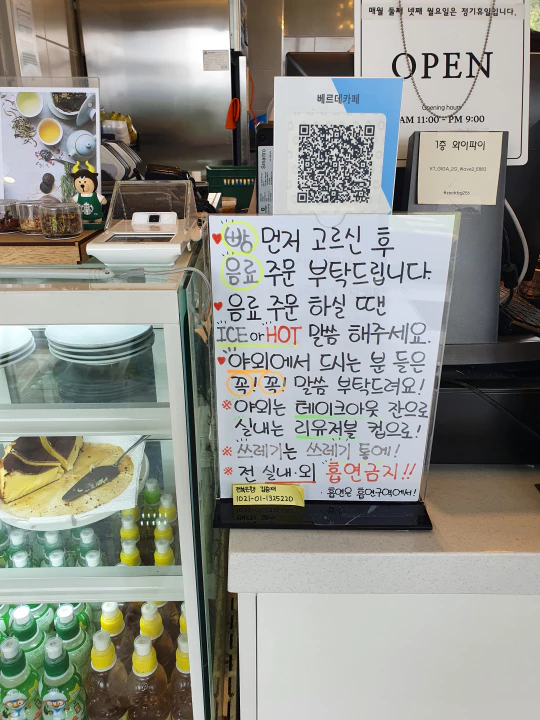 매월 둘째 넷째 월요일은 정기휴일입니다.
OPEN
Opening hours
AM 11:00 - PM 9:00
베르데카페
1층 와이파이
♥빵 먼저 고르신 후
음료 주문 부탁드립니다.
♥음료 주문 하실 땐
ICE or HOT 말씀 해주세요.
♥야외에서 드시는 분들은
꼭! 꼭! 말씀 부탁드려요!
※야외는 테이크아웃 잔으로
실내는 리유저블 컵으로!
※쓰레기는 쓰레기 통에!
※전 실내·외 흡연금지!!
흡연은 흡연구역에서!
1021-01-1325220